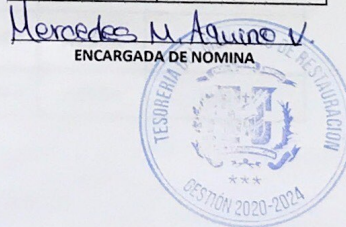 Mercedes M. Aquino V.
ENCARGADA DE NOMINA
TESORERIA DE RESTAURACION
***
GESTIÓN 2020-2024